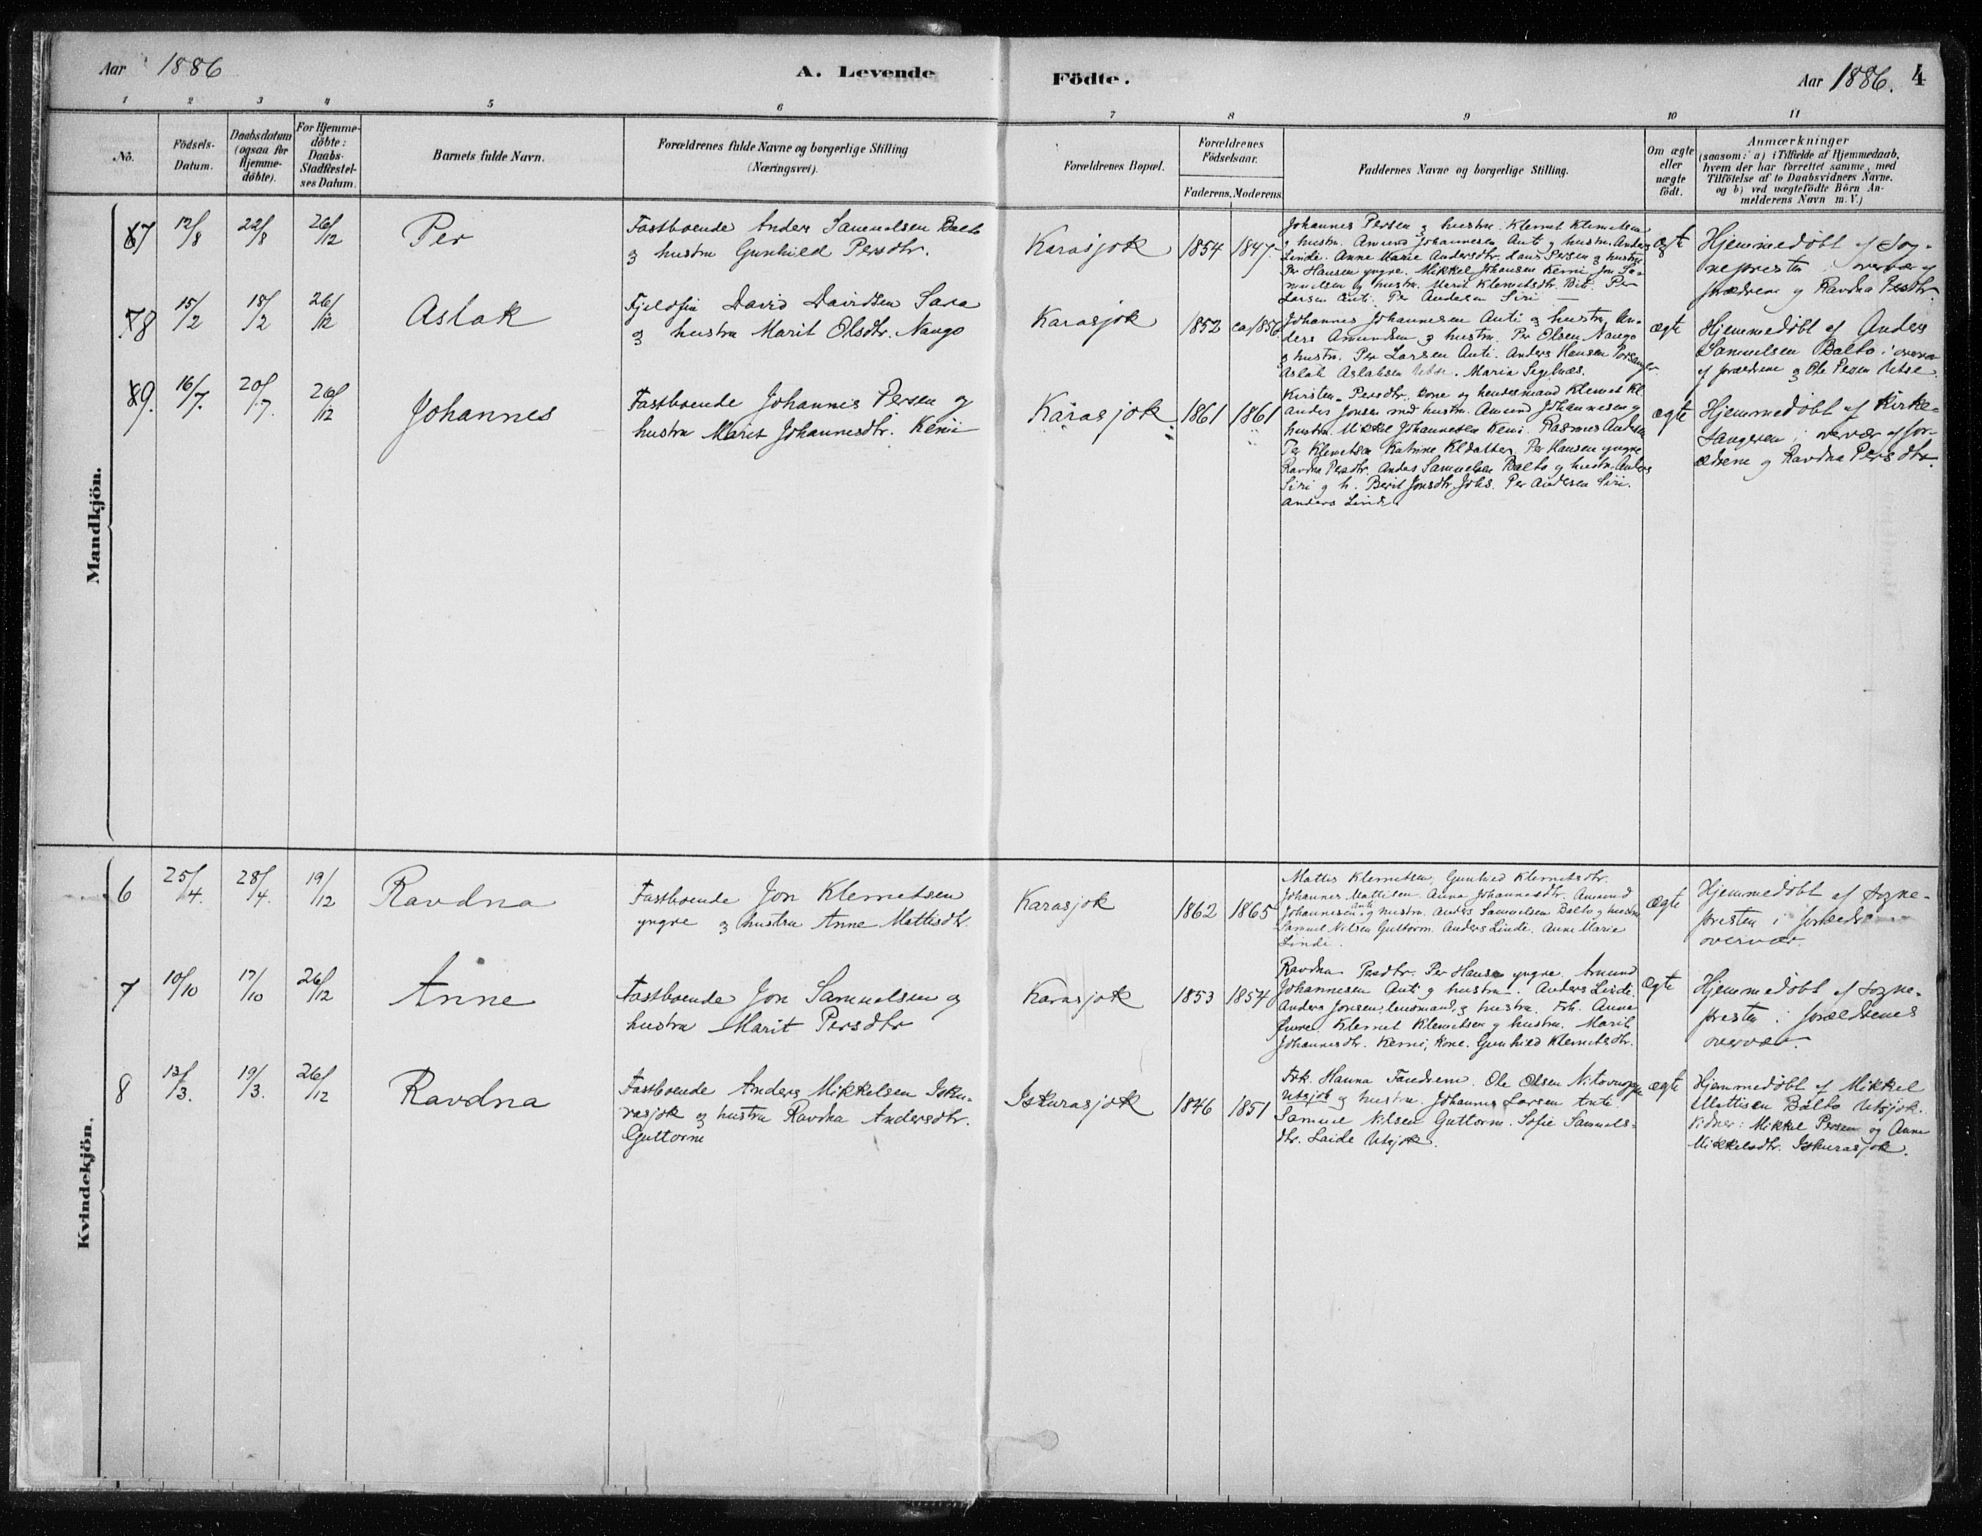 Aar 1886
A. Levende
Födte.
Aar 1886.
4
1 2 3 4 5 6 7 8 9 10 11
No.
Födsels-
Datum.
Daabsdatum
(ogsaa for
Hjemme-
döbte).
For Hjemme-
döbte:
Daabs-
Stadfæstel-
ses Datum.
Barnets fulde Navn.
Forældrenes fulde Navne og borgerlige Stilling
(Næringsvei).
Forældrenes Bopæl.
Forældrenes
Födselsaar.
Faderens. Moderens.
Faddernes Navne og borgerlige Stilling.
Om ægte
eller
uægte
födt.
Anmærkninger
(saasom: a) i Tilfælde af Hjemmedaab,
hvem der har forrettet samme, med
Tilföielse af to Daabsvidners Navne,
og b) ved uægtefödte Börn An-
melderens Navn m. V.)
Mandkjön.
7
12/8
22/8
26/12
Per
Fastboende Anders Samuelsen Balto
og hustru Gunhild Persdtr.
Karasjok
1854
1847.
Johannes Persen og hustru. Klemet Klemetsen
og hustru. Amund Johannesen Anti og hustru. Anders
Linde. Anne Marie Andersdtr. Lars Persen og hustru
Per Hansen yngre. Mikkel Johansen Kemi. Jon Sa-
muelsen og hustru. Marit Klemetsdtr. Per
Larsen Anti. Per Andersen Siri
ægte
Hjemmedøbt af Sog-
nepresten i overvær af
forældrene og Ravdna Persdtr.
8
15/2
18/2
26/12
Aslak
Fjeldfin David Davidsen Sara
og hustru Marit Olsdtr. Nango
Karasjok
1852
ca 1856
Johannes Johannesen Anti og hustru, An-
ders Amundsen og hustru. Per Olsen Nango
og hustru. Per Larsen Anti. Anders Hansen Porsanger.
Aslak Aslaksen Utse. Maria Segelnæs.
ægte
Hjemmedøbt af Anders
Samuelsen Balto i overvær
af forældrene og Ole Persen Utse.
9.
16/7.
20/7.
26/12
Johannes
Fastboende Johannes Persen og
hustru Marit Johannesdtr. Kemi
Karasjok
1861
1861
Kirsten Persdtr. kone og lensmand Klemet Kl.
Anders Jonsen med hustru. Amund Johannesen og
hustru. Mikkel Johannesen Kemi. Rasmus Andersen
Per Klemetsen Katrine Kldatter, Per Hansen yngre
Ravdna Persdtr. Anders Samuelsen Balto og hustru. Anders
Siri og h. Berit Jonsdtr. Johs. Per Andersen Siri.
Anders Linde.
ægte
Hjemmedøbt af Kirke-
sangeren i overvær af for-
ældrene og Ravdna Persdtr.
Kvindekjön.
6
25/4.
28/4.
19/12
Ravdna
Fastboende Jon Klemetsen
yngre og hustru Anne Mattisdtr.
Karasjok
1862
1865
Mattis Klemetsen, Gunhild Klemetsdtr.
Johannes Mattisen. Anna Johannesdtr. Amund
Johannesen Anti og hustru. Anders Samuelsen Balto og hustru
Samuel Nilsen Guttorm. Anders Linde. Anne Marie
Linde.
ægte
Hjemmedøbt af sogne-
presten i forældrenes
overvær.
7
10/10
17/10
26/12
Anne
Fastboende Jon Samuelsen og
hustru Marit Persdtr
Karasjok
1853
1854
Ravdna Persdtr. Per Hansen yngre. Amund
Johannesen Anti og hustru. Anders Linde.
Anders Jonsen, lensmand, og hustru. Frk. Anna
Klemet Klemetsen og hustru. Marit
Johannesdtr. Kemi, kone. Gunhild Klemetsdtr.
ægte
Hjemmedøbt af sogne-
presten i forældrenes
overvær.
8
13/3.
19/3.
26/12
Ravdna
Fastboende Anders Mikkelsen Isku-
rasjok og hustru Ravdna Andersdtr.
Guttorm
Iskurasjok
1846
1851
Frk. Hanna Tandrem. Ole Olsen Nitovuoppe
Utsjok og hustru. Johannes Larsen Anti.
Samuel Nilsen Guttorm. Sofie Samuels-
dtr. Laide Utsjok.
ægte
Hjemmedøbt af Mikkel
Mattisen Balto Utsjok.
Vidner: Mikkel Persen og Anne
Mikkelsdtr. Iskurasjok.